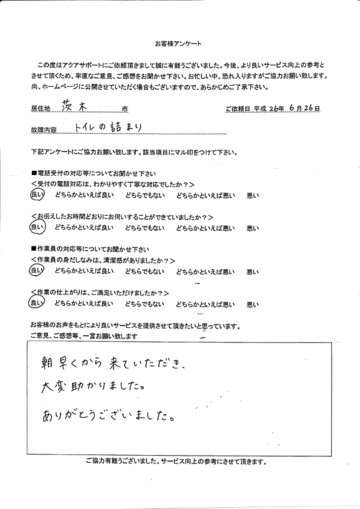 お客様アンケート
この度はアクアサポートにご依頼頂きまして誠に有難うございました。今後、より良いサービス向上の参考と
させて頂くため、率直なご意見、ご感想をお聞かせ下さい。お忙しい中、恐れ入りますがご協力お願い致します。
尚、ホームページに公開させていただく場合もございますので、あらかじめご了承下さい。
居住地 茨木 市 ご依頼日 平成 26年 6月 26日
故障内容 トイレの詰まり
下記アンケートにご協力お願い致します。該当項目にマル印をつけて下さい。
■電話受付の対応等についてお聞かせ下さい
＜受付の電話対応は、わかりやすく丁寧な対応でしたか？＞
良い どちらかといえば良い どちらでもない どちらかといえば悪い 悪い
＜お伝えしたお時間どおりにお伺いすることができていましたか？＞
良い どちらかといえば良い どちらでもない どちらかといえば悪い 悪い
■作業員の対応等についてお聞かせ下さい
＜作業員の身だしなみは、清潔感がありましたか？＞
良い どちらかといえば良い どちらでもない どちらかといえば悪い 悪い
＜作業の仕上がりは、ご満足いただけましたか？＞
良い どちらかといえば良い どちらでもない どちらかといえば悪い 悪い
お客様のお声をもとにより良いサービスを提供させて頂きたいと思っています。
ご意見、ご感想等、一言お願い致します
朝早くから来ていただき、
大変助かりました。
ありがとうございました。
ご協力有難うございました。サービス向上の参考にさせて頂きます。